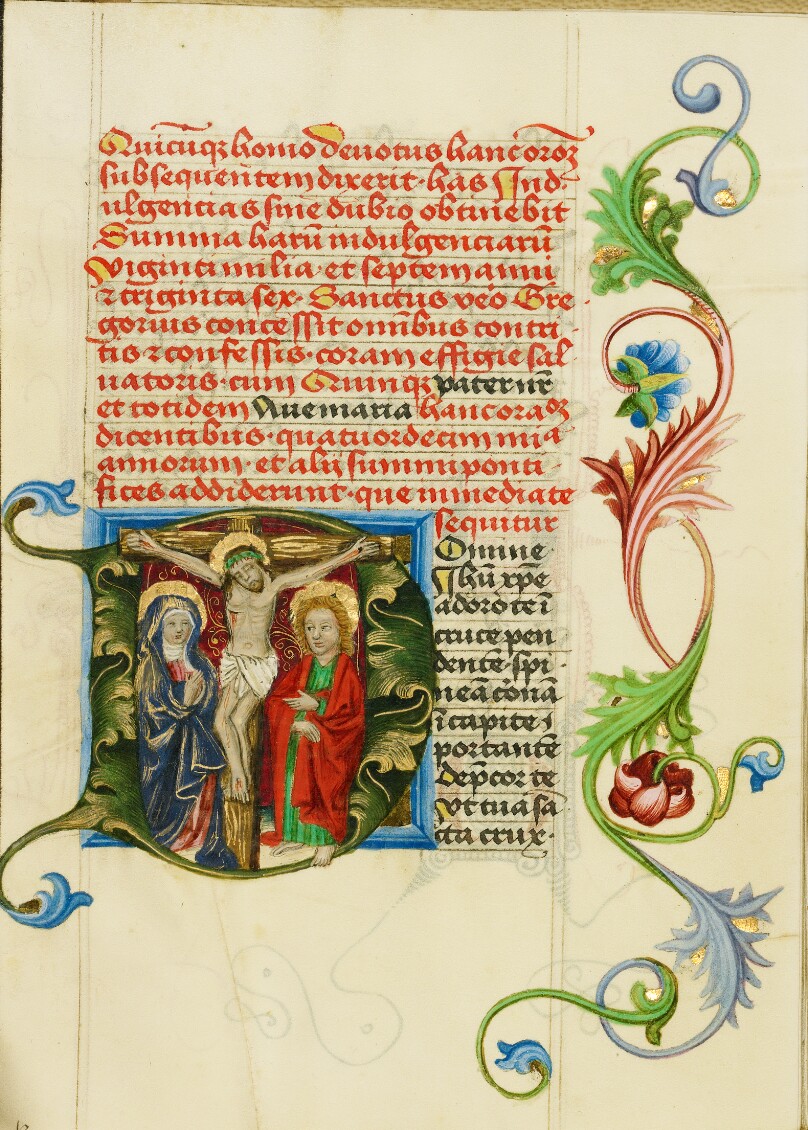 Quicu̅qꝫ homo deuotus hanc or̅oꝫ
subsequentem dixerit· has Ind⸗
ulgencias sine dubio obtinebit
Summa haru̅ indulgenciaru̅
Viginti milia· et septem anni
⁊ triginta sex· Sanctus ve̅o Gre⸗
gorius concessit om̅ibus contri⸗
tis ⁊ confessis· coram effigie sal⸗
uatoris· cum Quinqꝫ pater nr̅
et totidem Aue maria hanc ora̅oꝫ
dicentibus· quatuordecim miᵃ
annorum· et alij summi ponti⸗
fices addiderunt· que inmediate
sequitur
Domine
Ihu̅ xp̅e
adoro te i̅
cruce pen
dente̅· spi⸗
nea̅ coro̅a̅
i̅ capite
portante̅
dep̅cor te
vt tua sa̅
cta crux·